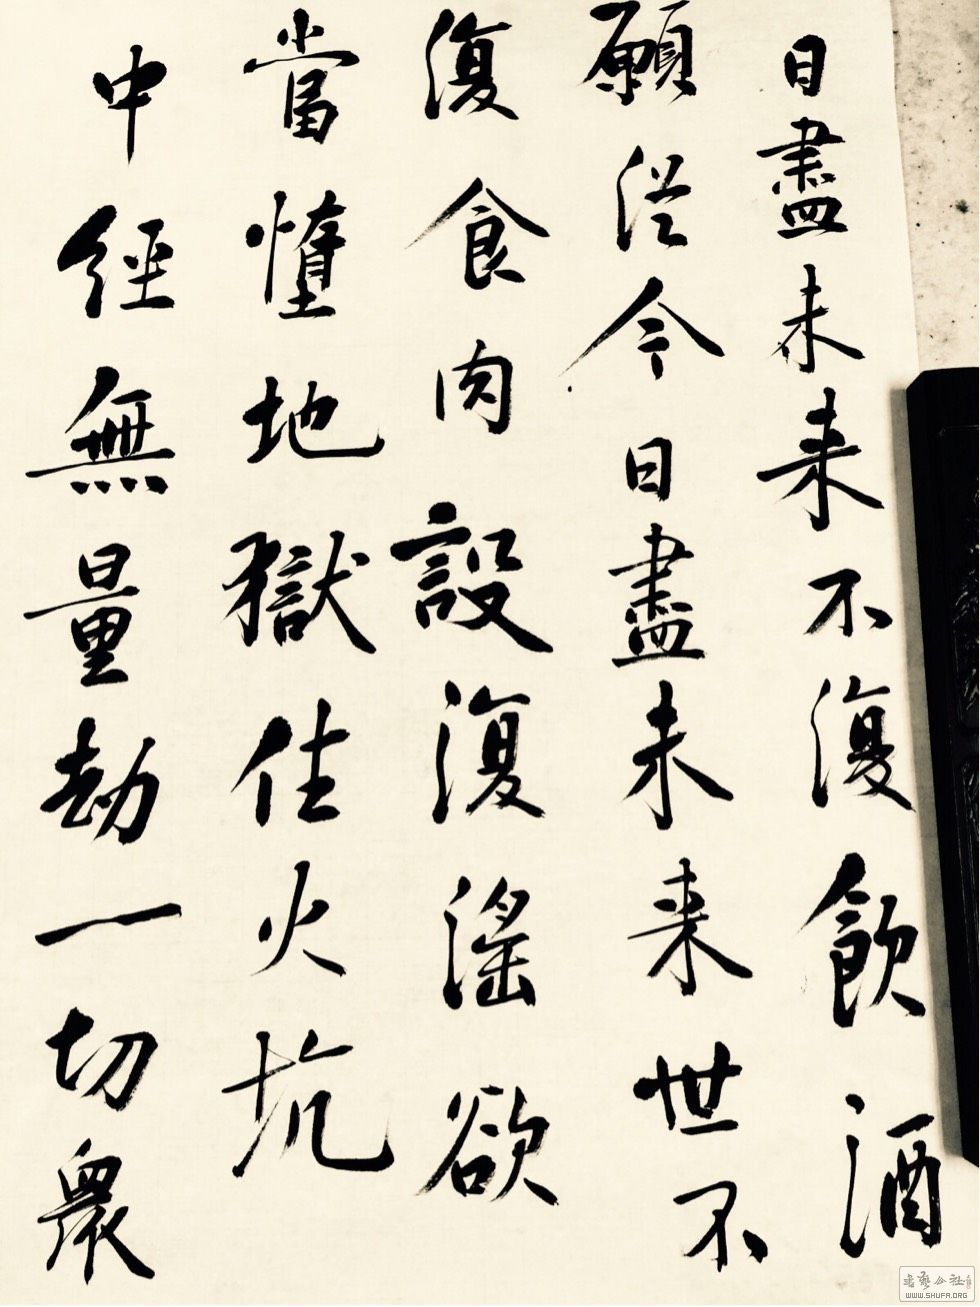 日盡未来不復飲酒
願從今日盡未来世不
復食肉設復淫欲
當墮地獄住火坑
中經無量劫一切衆
WWW.SHUFA.ORG